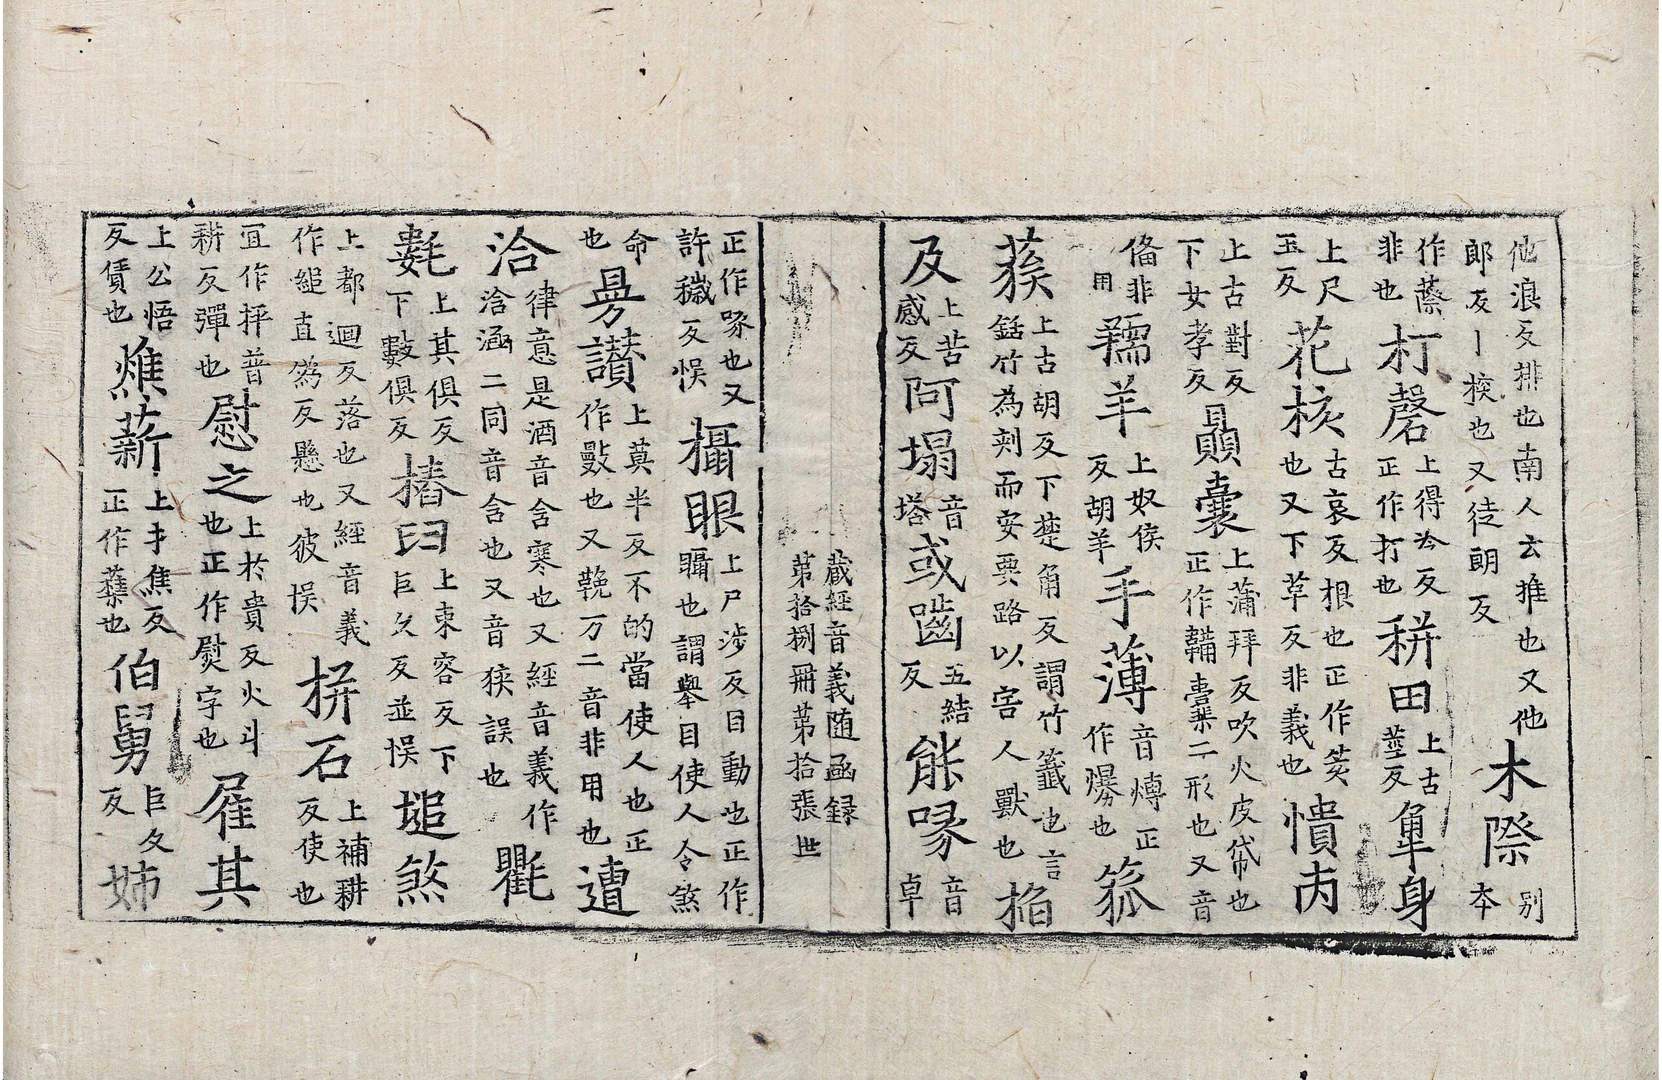 他浪反排也南人云推也又他
郎反丨㨶也又徒朗反
木際
別
本
作蔡
非也
朾磬
上得冷反
正作打也
秹田
上古
莖反
𠦜身
上尺
玉反
花核
古哀反根也正作荄
也又下革反非義也
憒㐫
上古對反
下女孝反
贔囊
上蒲拜反吹火皮帒也
正作韛橐二形也又音
俻非
用
羺羊
上奴侯
反胡羊
手薄
音煿正
作爆也
箛
蔟
上古胡反下楚角反謂竹籤也言
銛竹為刾而安要路以害人獸也
𣕊
及
上苦
感反
阿塌
音
塔
或嚙
五結
反
能啄
音
卓
藏經音義随函録
第拾捌冊第拾張世
正作啄也又
許穢反悮
攝眼
上尸涉反目動也正作
𥌊也謂舉目使人令煞
命
也
㝵讃
上莫半反不的當使人也正
作㪤也又䩊万二音非用也
遭
洽
律意是酒音含寒也又經音義作
浛涵二同音含也又音狹誤也
氍
㲣
上其俱反
下數俱反
樁臼
上束容反下
巨久反並悮
塠煞
上都迴反落也又經音義
作縋直為反懸也彼悮
拼石
上補耕
反使也
冝作抨普
耕反彈也
慰之
上於貴反火斗
也正作熨字也
雇其
上公悟
反賃也
燋薪
上才焦反
正作蕉也
伯舅
巨久
反
姊